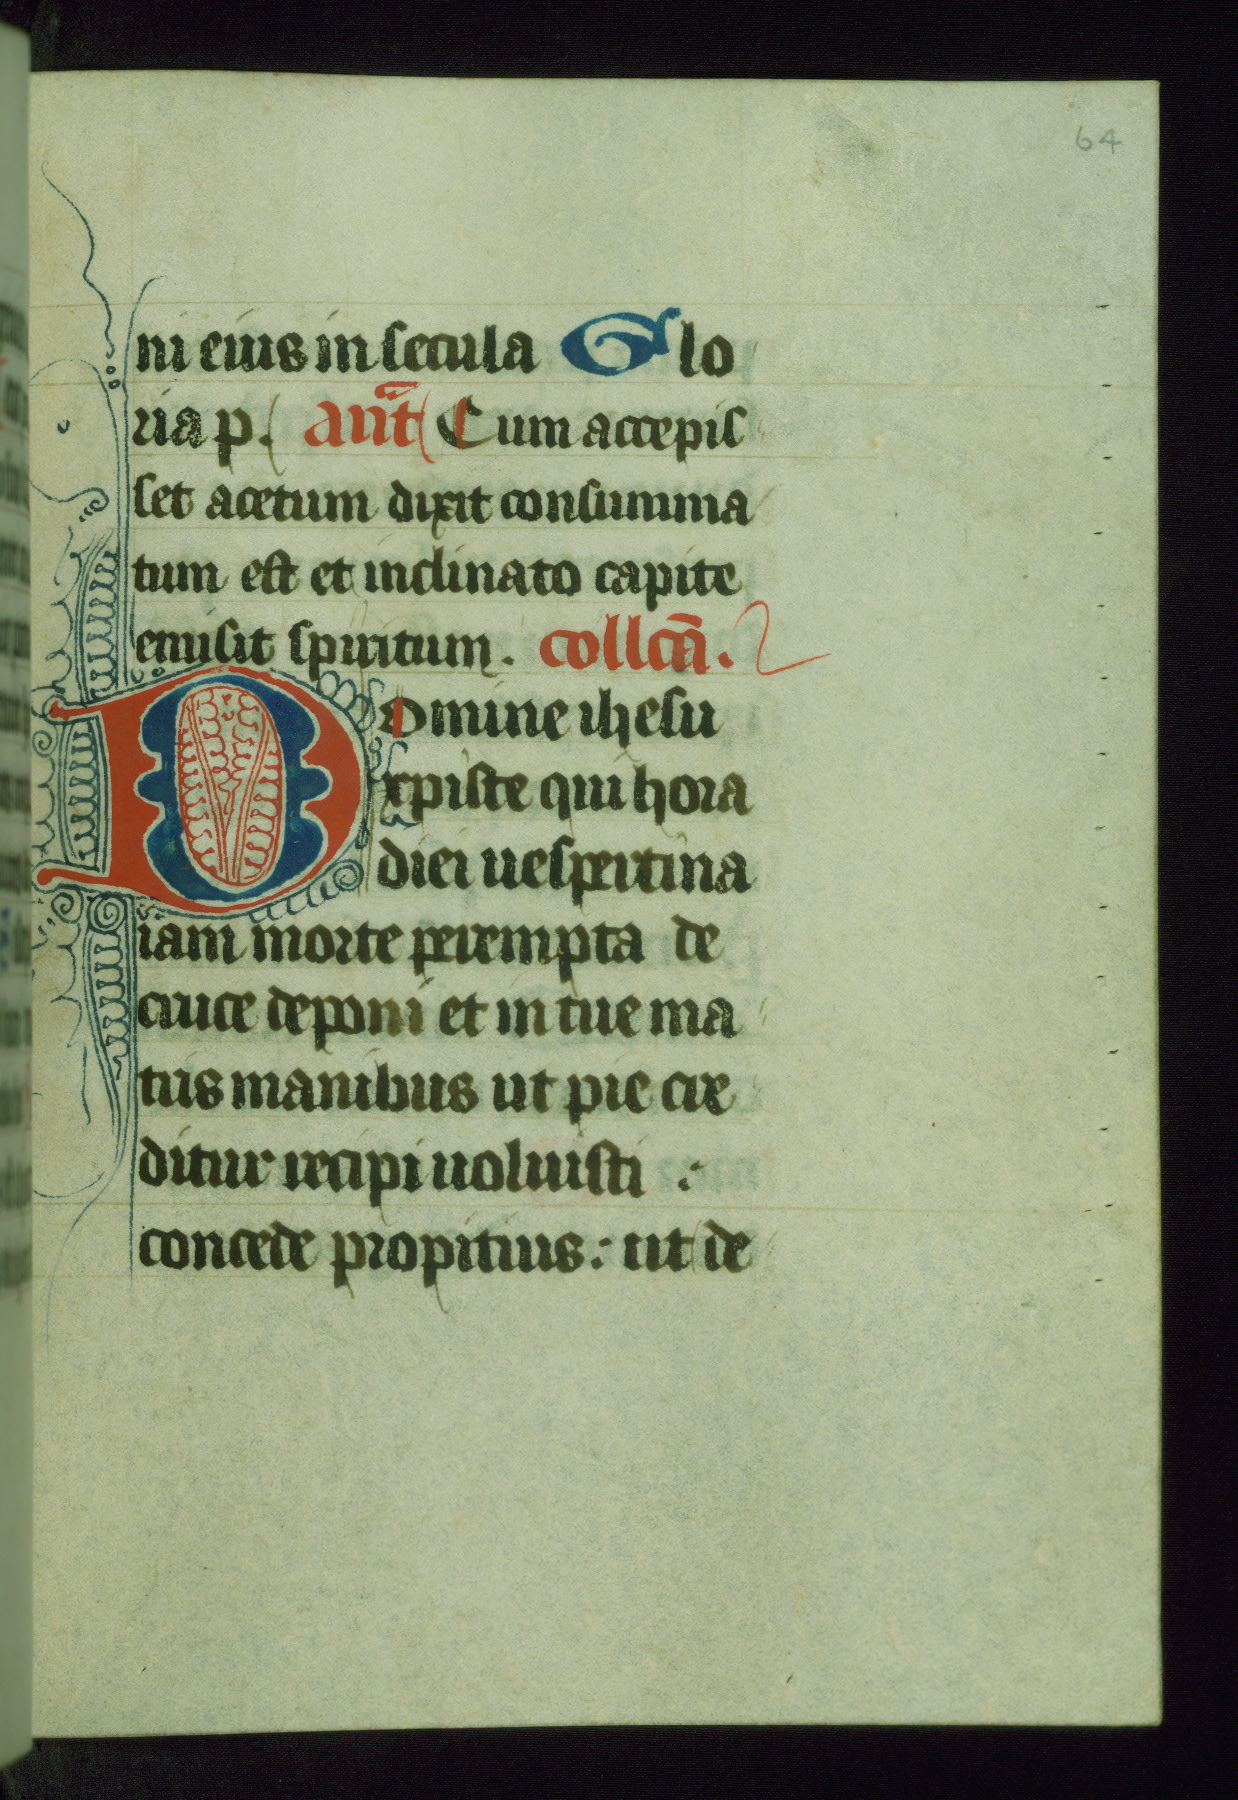 64
ni eius in secula Glo
ria p. ant̄ Cum accepis
set acetum dixit consumma
tum est et inclinato capite
emisit spiritum. collcā.
Domine ihesu
xpiste qui hora
diei uespertina
iam morte perempta de
cruce deponi et in tue ma
tris manibus ut pie cre
ditur recipi uoluisti :
concede propitius : ut de